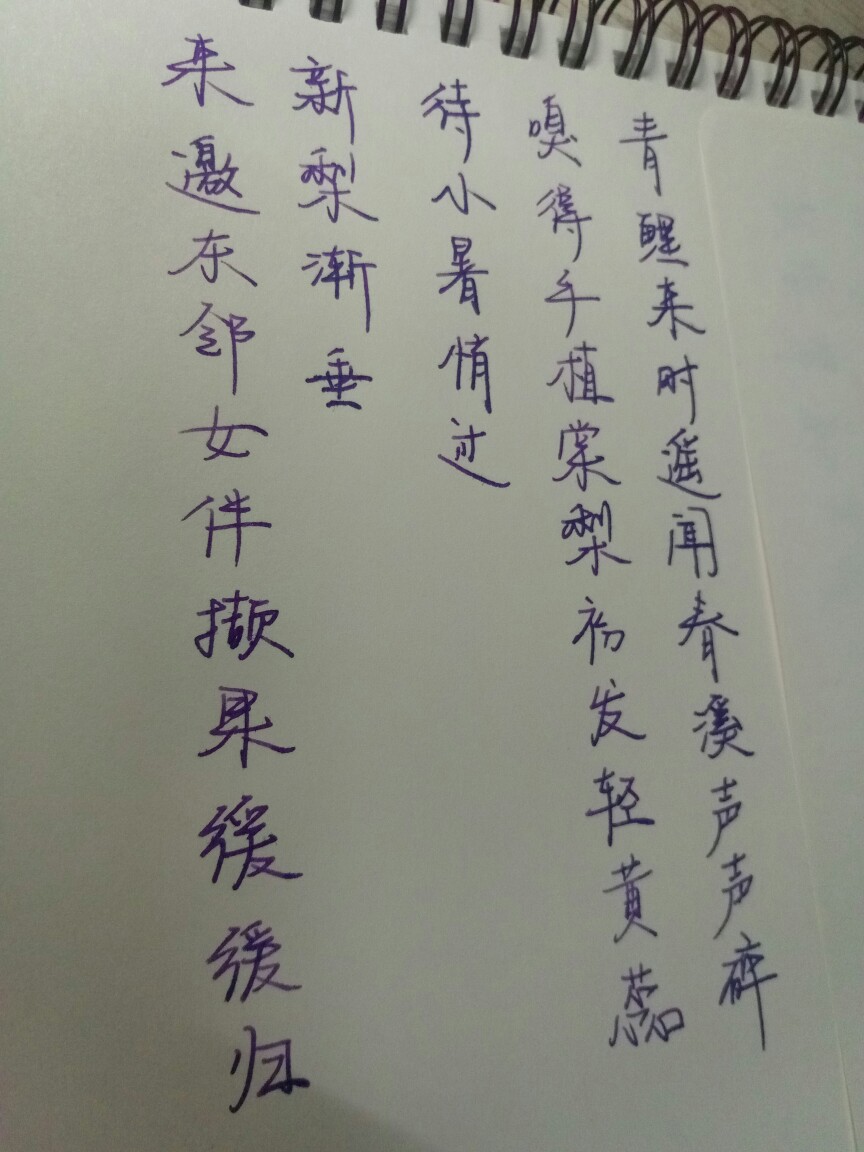 青醒来时遥闻春溪声声碎
嗅得手植棠梨初发轻黄蕊
待小暑悄过
新梨渐垂
来邀东邻女伴撷果缓缓归